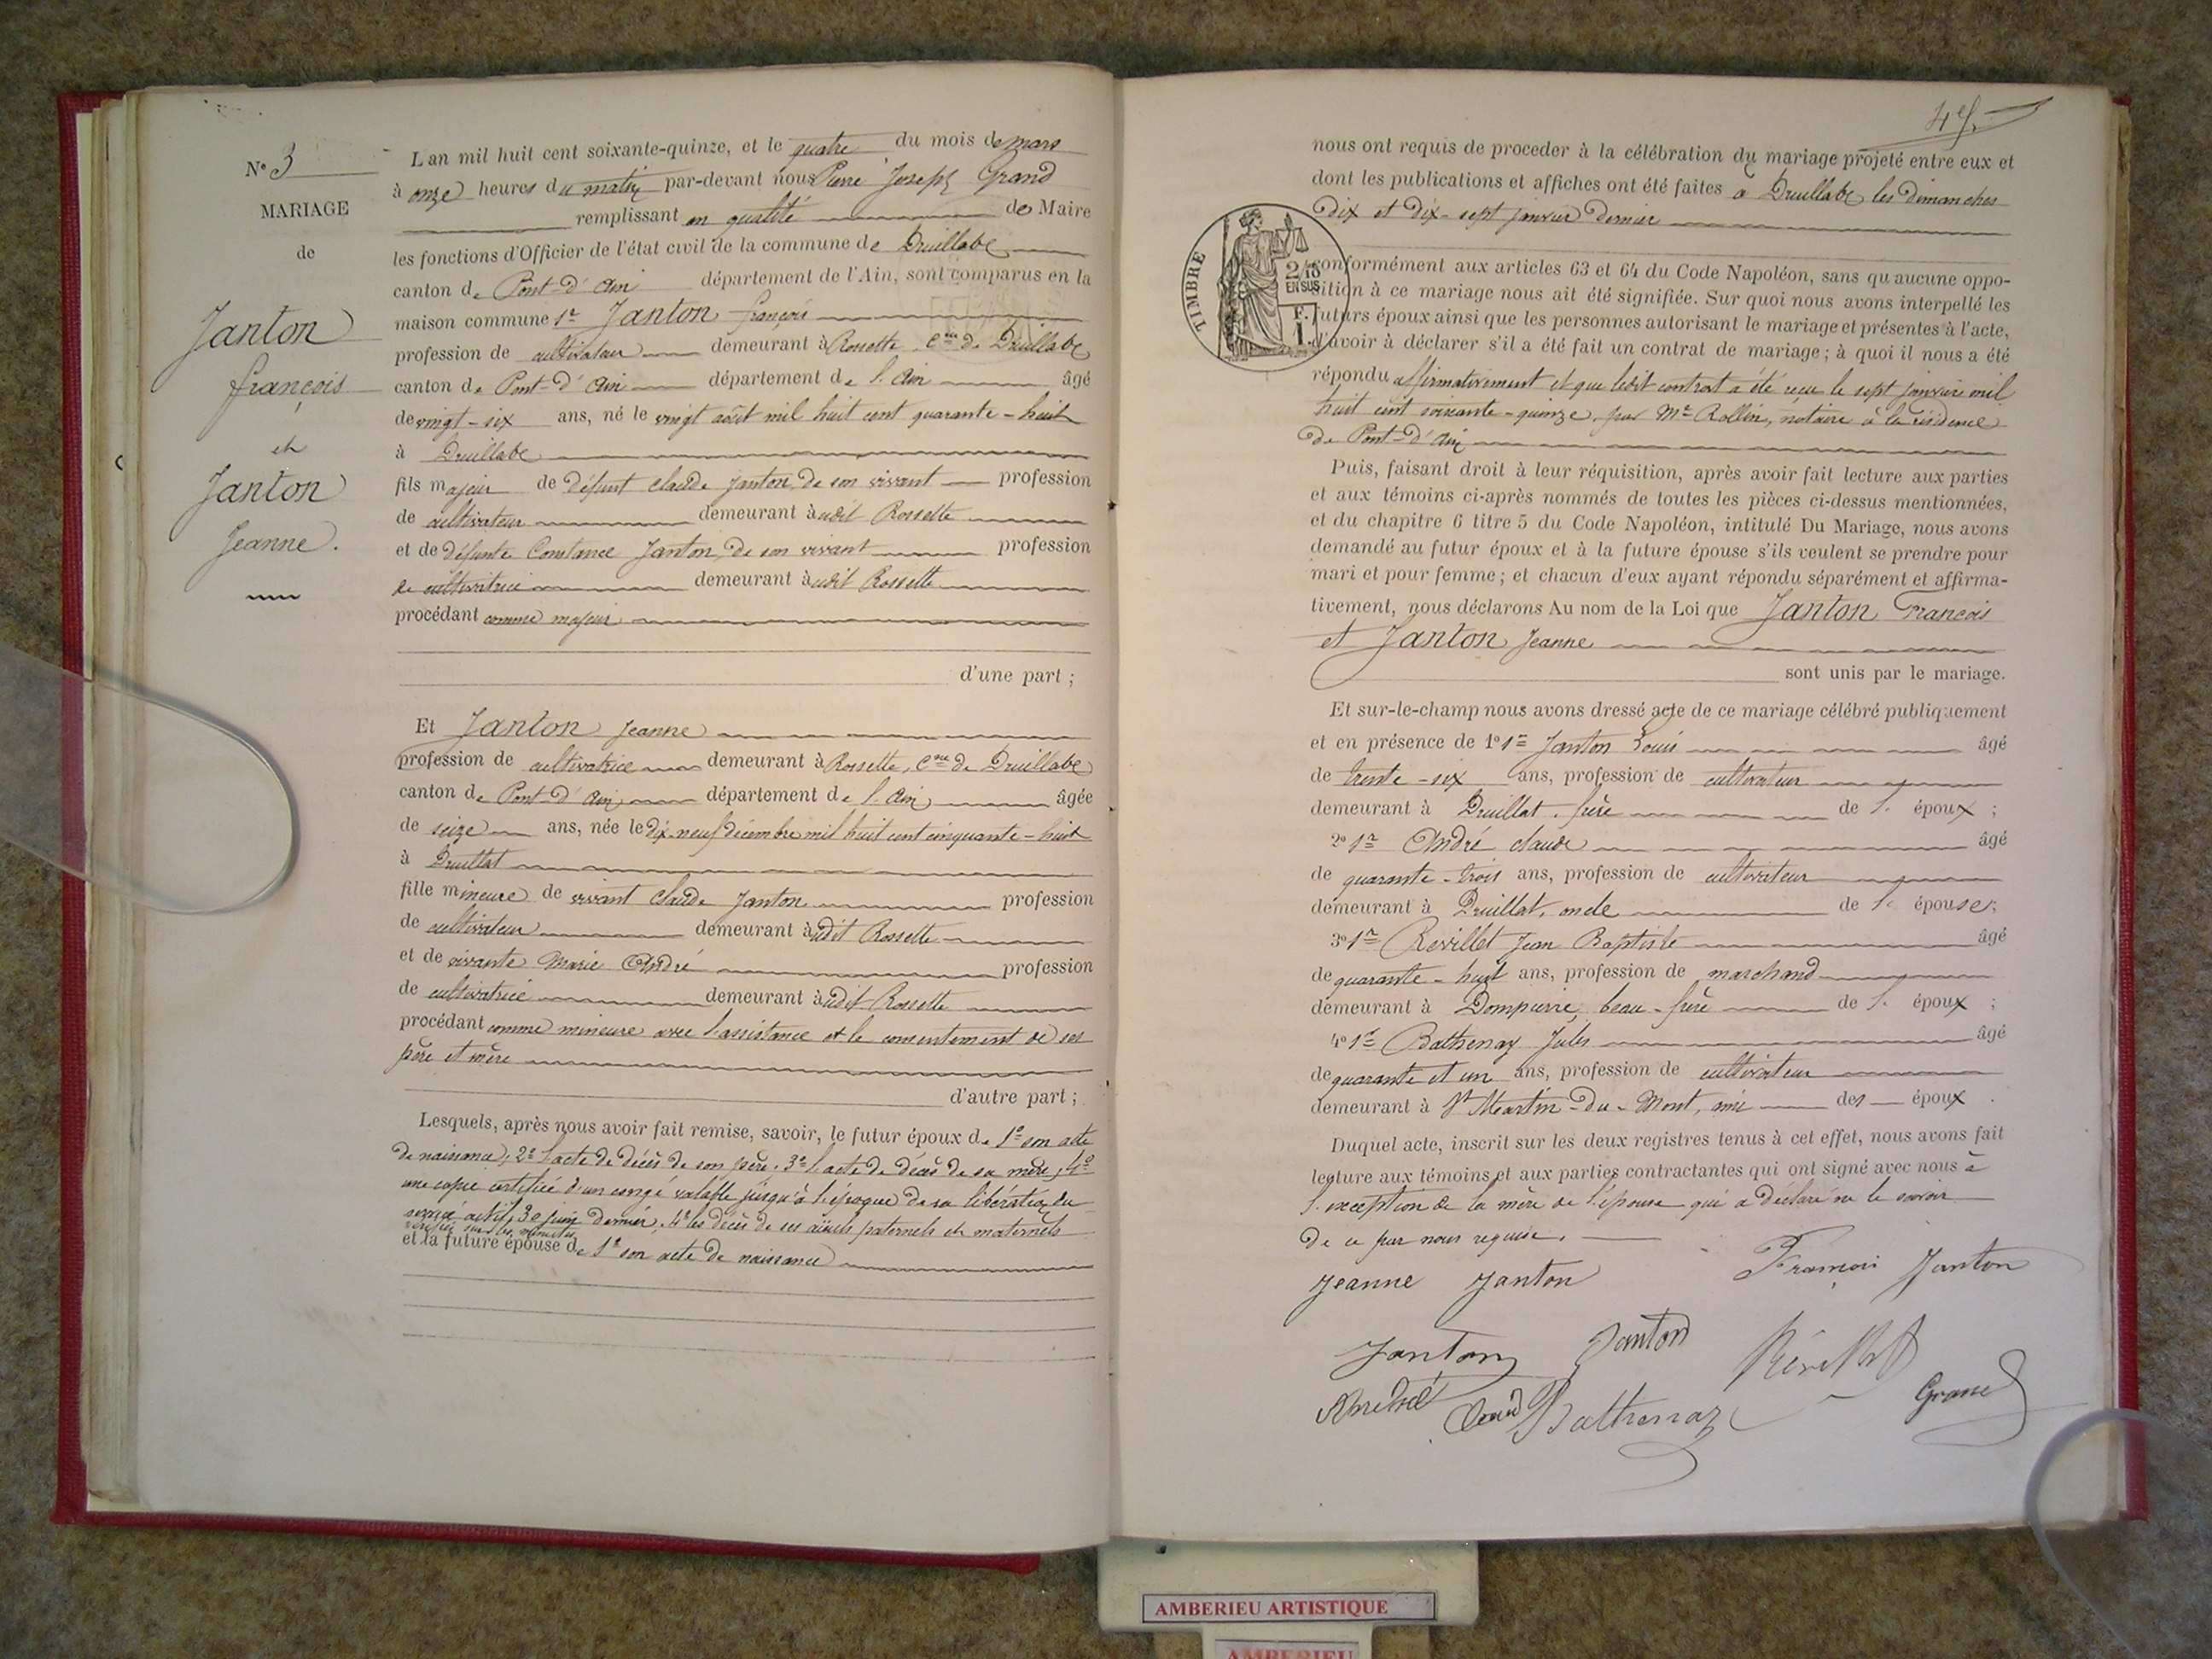 N° 3
MARIAGE
de
Janton
françois
et
Janton
Jeanne.
L'an mil huit cent soixante-quinze, et le quatre du mois de mars
à onze heures du matin par-devant nous Pierre Joseph Grand
remplissant en qualité de Maire
les fonctions d'Officier de l'état civil de la commune de Druillat
canton de Pont-d'Ain département de l'Ain, sont comparus en la
maison commune 1° Janton françois
profession de cultivateur demeurant à Rossette Cne de Druillat
canton de Pont-d'Ain département de l'Ain âgé
de vingt-six ans, né le vingt août mil huit cent quarante-huit
à Druillat
fils majeur de défunt Claude Janton de son vivant profession
de cultivateur demeurant audit Rossette
et de défunte Constance Janton de son vivant profession
de cultivatrice demeurant audit Rossette
procédant comme majeur
d'une part ;
Et Janton Jeanne
profession de cultivatrice demeurant à Rossette, Cne de Druillat
canton de Pont-d'Ain département de l'Ain âgée
de seize ans, née le dix-neuf décembre mil huit cent cinquante-huit
à Druillat
fille mineure de vivant Claude Janton profession
de cultivateur demeurant audit Rossette
et de vivante Marie André profession
de cultivatrice demeurant audit Rossette
procédant comme mineure avec l'assistance et le consentement de ses
père et mère
d'autre part ;
Lesquels, après nous avoir fait remise, savoir, le futur époux de 1° son acte
de naissance; 2° l'acte de décès de son père. 3° l'acte de décès de sa mère, 4°
une copie certifiée d'un congé valable jusqu'à l'époque de sa libération du
service actif, 30 juin dernier. 4° les décès de ses aïeux paternels et maternels
vérifiés sur les minutes
et la future épouse de 1° son acte de naissance
nous ont requis de proceder à la célébration du mariage projeté entre eux et
dont les publications et affiches ont été faites à Druillat les dimanches
dix et dix-sept janvier dernier
TIMBRE
2/10
EN SUS
F.
1.
conformément aux articles 63 et 64 du Code Napoléon, sans qu'aucune oppo-
sition à ce mariage nous ait été signifiée. Sur quoi nous avons interpellé les
futurs époux ainsi que les personnes autorisant le mariage et présentes à l'acte,
d'avoir à déclarer s'il a été fait un contrat de mariage ; à quoi il nous a été
répondu affirmativement et que ledit contrat a été reçu le sept janvier mil
huit cent soixante-quinze par Me Rollin, notaire à la résidence
de Pont-d'Ain
Puis, faisant droit à leur réquisition, après avoir fait lecture aux parties
et aux témoins ci-après nommés de toutes les pièces ci-dessus mentionnées,
et du chapitre 6 titre 5 du Code Napoléon, intitulé Du Mariage, nous avons
demandé au futur époux et à la future épouse s'ils veulent se prendre pour
mari et pour femme ; et chacun d'eux ayant répondu séparément et affirma-
tivement, nous déclarons Au nom de la Loi que Janton François
et Janton Jeanne
sont unis par le mariage.
Et sur-le-champ nous avons dressé acte de ce mariage célébré publiquement
et en présence de 1° Sr Janton Louis âgé
de trente-six ans, profession de cultivateur
demeurant à Druillat, frère de l' époux ;
2° Sr André Claude âgé
de quarante-trois ans, profession de cultivateur
demeurant à Druillat, oncle de l' épouse;
3° Sr Revillet Jean Baptiste âgé
de quarante-huit ans, profession de marchand
demeurant à Dompierre, beau-frère de l' époux ;
4° Sr Bathenay Jules âgé
de quarante et un ans, profession de cultivateur
demeurant à St Martin-du-Mont, ami des époux.
Duquel acte, inscrit sur les deux registres tenus à cet effet, nous avons fait
lecture aux témoins et aux parties contractantes qui ont signé avec nous à
l'exception de la mère de l'épouse qui a déclaré ne le savoir
de ce par nous requise.
Jeanne Janton François Janton
Janton Janton Révillet
André Claud Bathenay Grand
AMBERIEU ARTISTIQUE
AMBERIEU